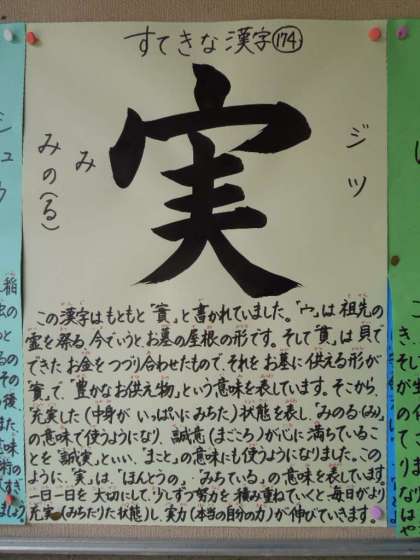 すてきな漢字174
実
ジツ
み
みの(る)
この漢字はもともと「實」と書かれていました。「ウ」は祖先の
霊を祭る、今でいうと、お墓の屋根の形です。そして「貫」は貝で
できたお金をつづり合わせたもので、それをお墓に供える形が
「實」で、「豊かなお供え物」という意味を表しています。そこから、
「充実した(中身が いっぱいにみちた)状態を表し、「みのる(み)」
の意味で使うようになり、誠意(まごころ)が心に満ちているこ
とを「誠実」といい、「まこと」の意味にも使うようになりました。この
ように、「実」は、「ほんとうの」、「みちている」の意味を表しています。
一日一日を大切にして、少しずつ努力を積み重ねていくと、毎日がより
充実(みちたりた状態)し、実力(本当の自分の力)が伸びていきます。